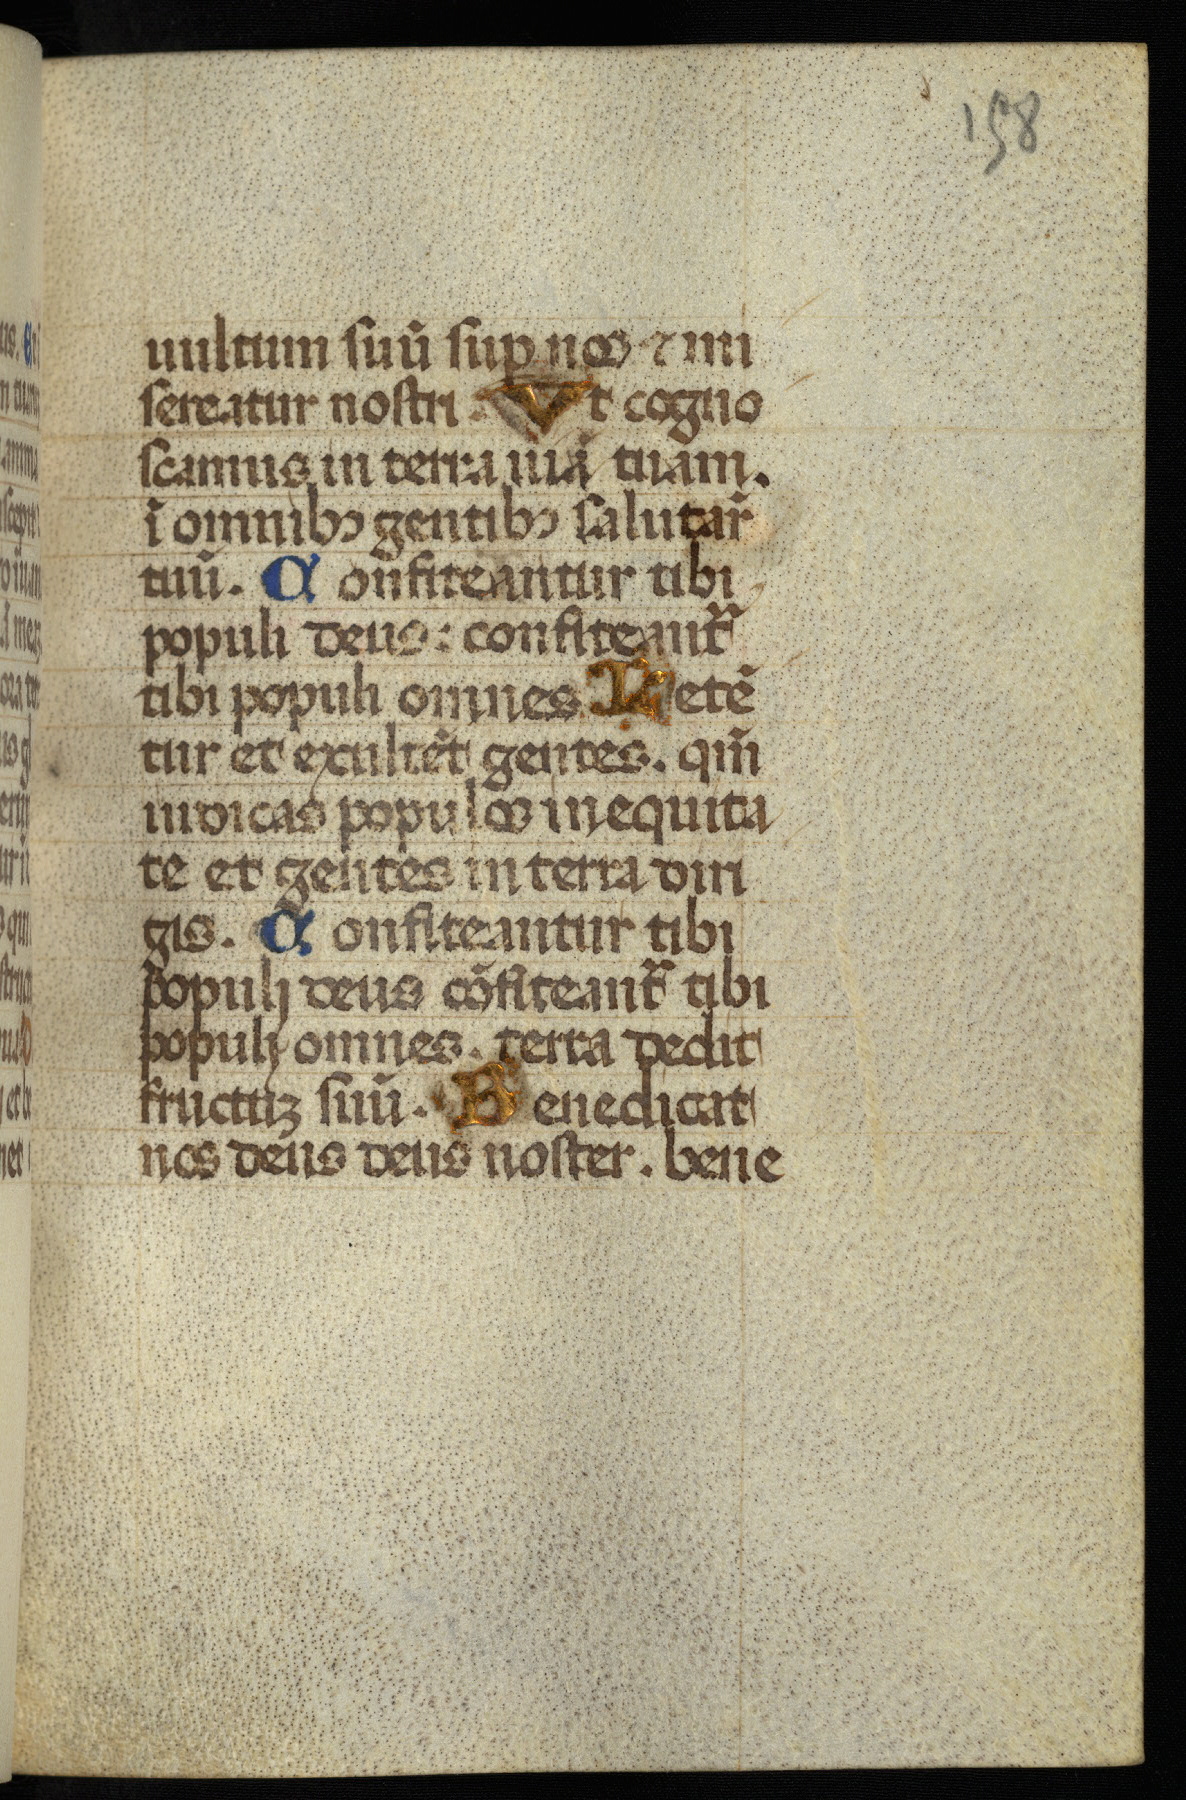 158
uultum suũ sup̱ nos ⁊ mi
sereatur nostri. Vt cogno
scamus in terra uiã tuam.
ĩ omnibꝫ gentibꝫ salutar̃
tuũ. Confiteantur tibi
populi deus: confiteant᷑
tibi populi omnes. Letẽ
tur et exultẽt gentes. qm̃
iudicas populos in equita
te et gentes in terra diri
gis. Confiteantur tibi
populi deus cõfiteant᷑ tibi
populi omnes. terra dedit
fructuꝫ suũ. Benedicat
nos deus deus noster. bene